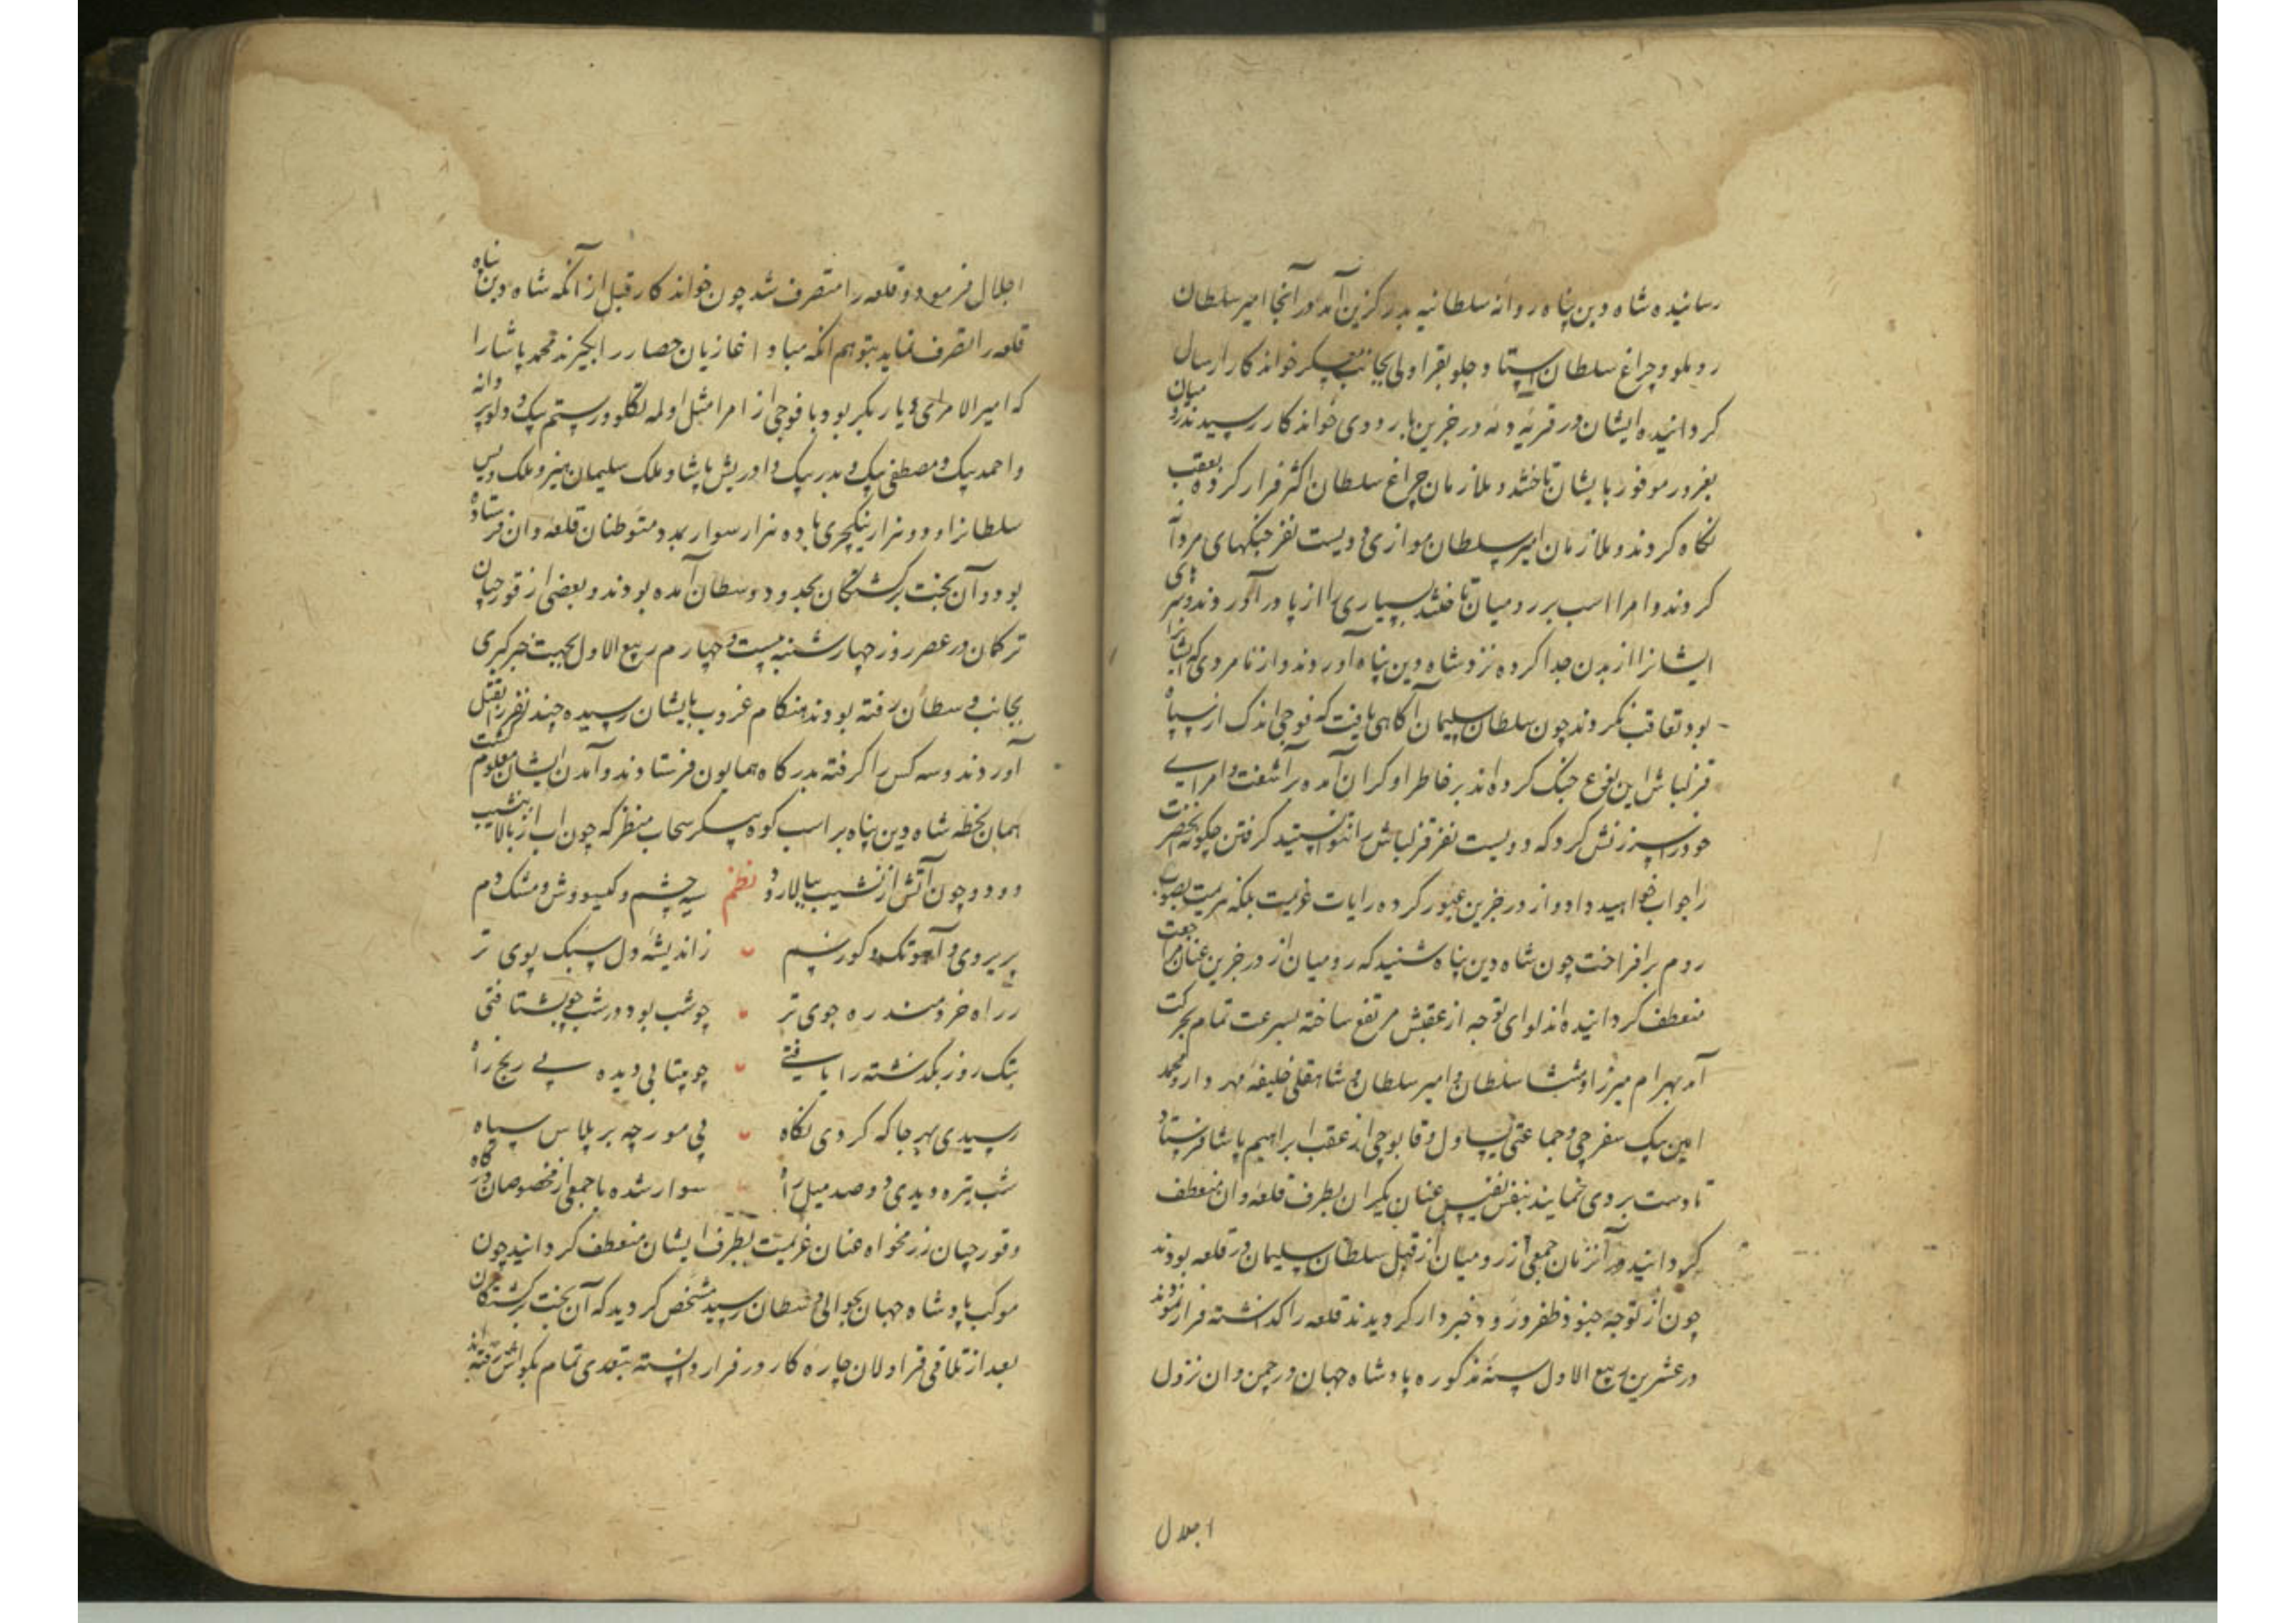 رسانیده شاه دین پناه روانه سلطانیه بدر کزین آمد در آنجا امیر سلطان
روملو و چراغ سلطان استا و جلو بقراولی بجانب معسکر خواندکار ارسال
کردانیده ایشان در قریه دنه در خزین باردوی خواندکار رسیدند رومیان
بغرور موفور بایشان تاختند و ملازمان چراغ سلطان اکثر فرار کرده بعقب
نگاه کردند و ملازمان امیر سلطان موازی دویست نفر جنکهای مردانه
کردند و امرا اسب بر رومیان تاختند بسیاری را از پا در آوردند و سرهای
ایشانرا از بدن جدا کرده نزد شاه دین پناه آوردند و از نامردی که ایشانرا
بود تعاقب نکردند چون سلطان سلیمان آکاهی یافت که فوجی اندک از سپاه
قزلباش این نوع جنک کرده‌اند بر خاطر او کران آمده برآشفت و امرای
خود را سرزنش کرد که دویست نفر قزلباش را نتوانستید کرفتن چکونه آنحضرت
را جواب خواهید داد و از در خزین عبور کرده رایات عزیمت بلکه هزیمت بصوب
روم برافراخت چون شاه دین پناه شنید که رومیان از در خزین عنان مراجعت
منعطف کردانیده‌اند لوای توجه از عقبش مرتفع ساخته بسرعت تمام بحرکت
آمد بهرام میرزا و منتشا سلطان و امیر سلطان و شاهقلی خلیفهٔ مهردار و محمد
امین بیک سفرچی و جماعتی یساول و قابوچی از عقب ابراهیم پاشا فرستاد
تا دست بردی نمایند بنفس نفیس عنان یکران بطرف قلعهٔ وان منعطف
کردانید در آنزمان جمعی از رومیان از قبل سلطان سلیمان در قلعه بودند
چون از توجه جنود ظفر ورود خبردار کردیدند قلعه را کذاشته فرار نمودند
در عشرین ربیع الاول سنهٔ مذکوره پادشاه جهان در چمن وان نزول
اجلال
اجلال فرمود و قلعه را متصرف شد چون خواندکار قبل از آنکه شاه دین پناه
قلعه را تصرف نماید بتوهم انکه مبادا غازیان حصار را بکیرند محمد پاشا را
که امیر الامرای دیار بکر بود با فوجی از امرا مثل اولمه تکلو و رستم بیک و دلوپیر وانه
و احمد بیک و مصطفی بیک و بدر بیک و ادریش پاشا و ملک سلیمان هیزو ملک ویس
سلطانرا و دو هزار ینکچری با ده هزار سوار بمدد متوطنان قلعهٔ وان فرستاده
بود و آن بخت برکشتکان بحدود وسطان آمده بودند و بعضی از قورچیان
ترکان در عصر روز چهارشنبه بیست و چهارم ربیع الاول بجهت خبرکیری
بجانب وسطان رفته بودند هنکام غروب بایشان رسیده چند نفر را بقتل
آوردند و سه کس را کرفته بدرکاه همایون فرستادند و آمدن ایشان معلوم کشت
همان لحظه شاه دین پناه بر اسب کوه پیکر سحاب منظر که چون اب از بالا بنشیب
دود و چون آتش از نشیب ببالا رود نظم سیه چشم و کیسووش و مشک دم
پریروی و آهوتک و کور سم زاندیشهٔ دل سبک پوی تر
ز راه خردمند ره جوی تر چو شب بود در شب چو بشتافتی
بتک روز بکذشته را یافتی چو بیتابی دیده پی رنج راه
رسیدی بهر جا که کردی نکاه پی مورچه بر پلاس سیاه
شب تیره دیدی دو صد میل راه سوار شده با جمعی از مخصوصان درکاه
و قورچیان رزمخواه عنان عزیمت بطرف ایشان منعطف کردانید چون
موکب پادشاه جهان بحوالی وسطان رسید مشخص کردید که آن بخت برکشتکان
بعد از تلاقی قراولان چاره کار در فرار دانسته بتعدی تمام بکواش رفته‌اند